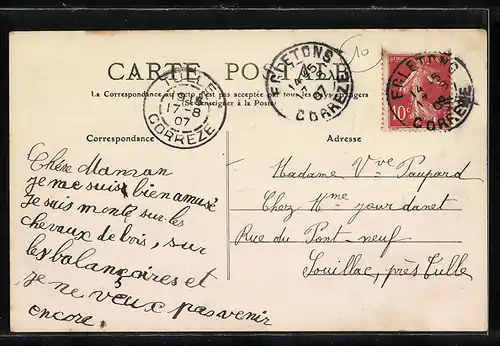 CARTE POSTALE
La Correspondance au recto n'est pas acceptée par tous les pays étrangers
(Se renseigner à la Poste)
TULLE
17-8
07
CORREZE
EGLETONS
14-45
17-8
07
CORREZE
10
EGLETONS
CORREZE
10c
Correspondance
Adresse
Chère Maman
je me suis bien amusé
je suis monté sur les
chevaux de bois, sur
les balançoires et
je ne veux pas venir
encore.
Madame Vve Paupard
Chez Mme jourdanet
Rue du Pont-neuf
Souillac, près Tulle